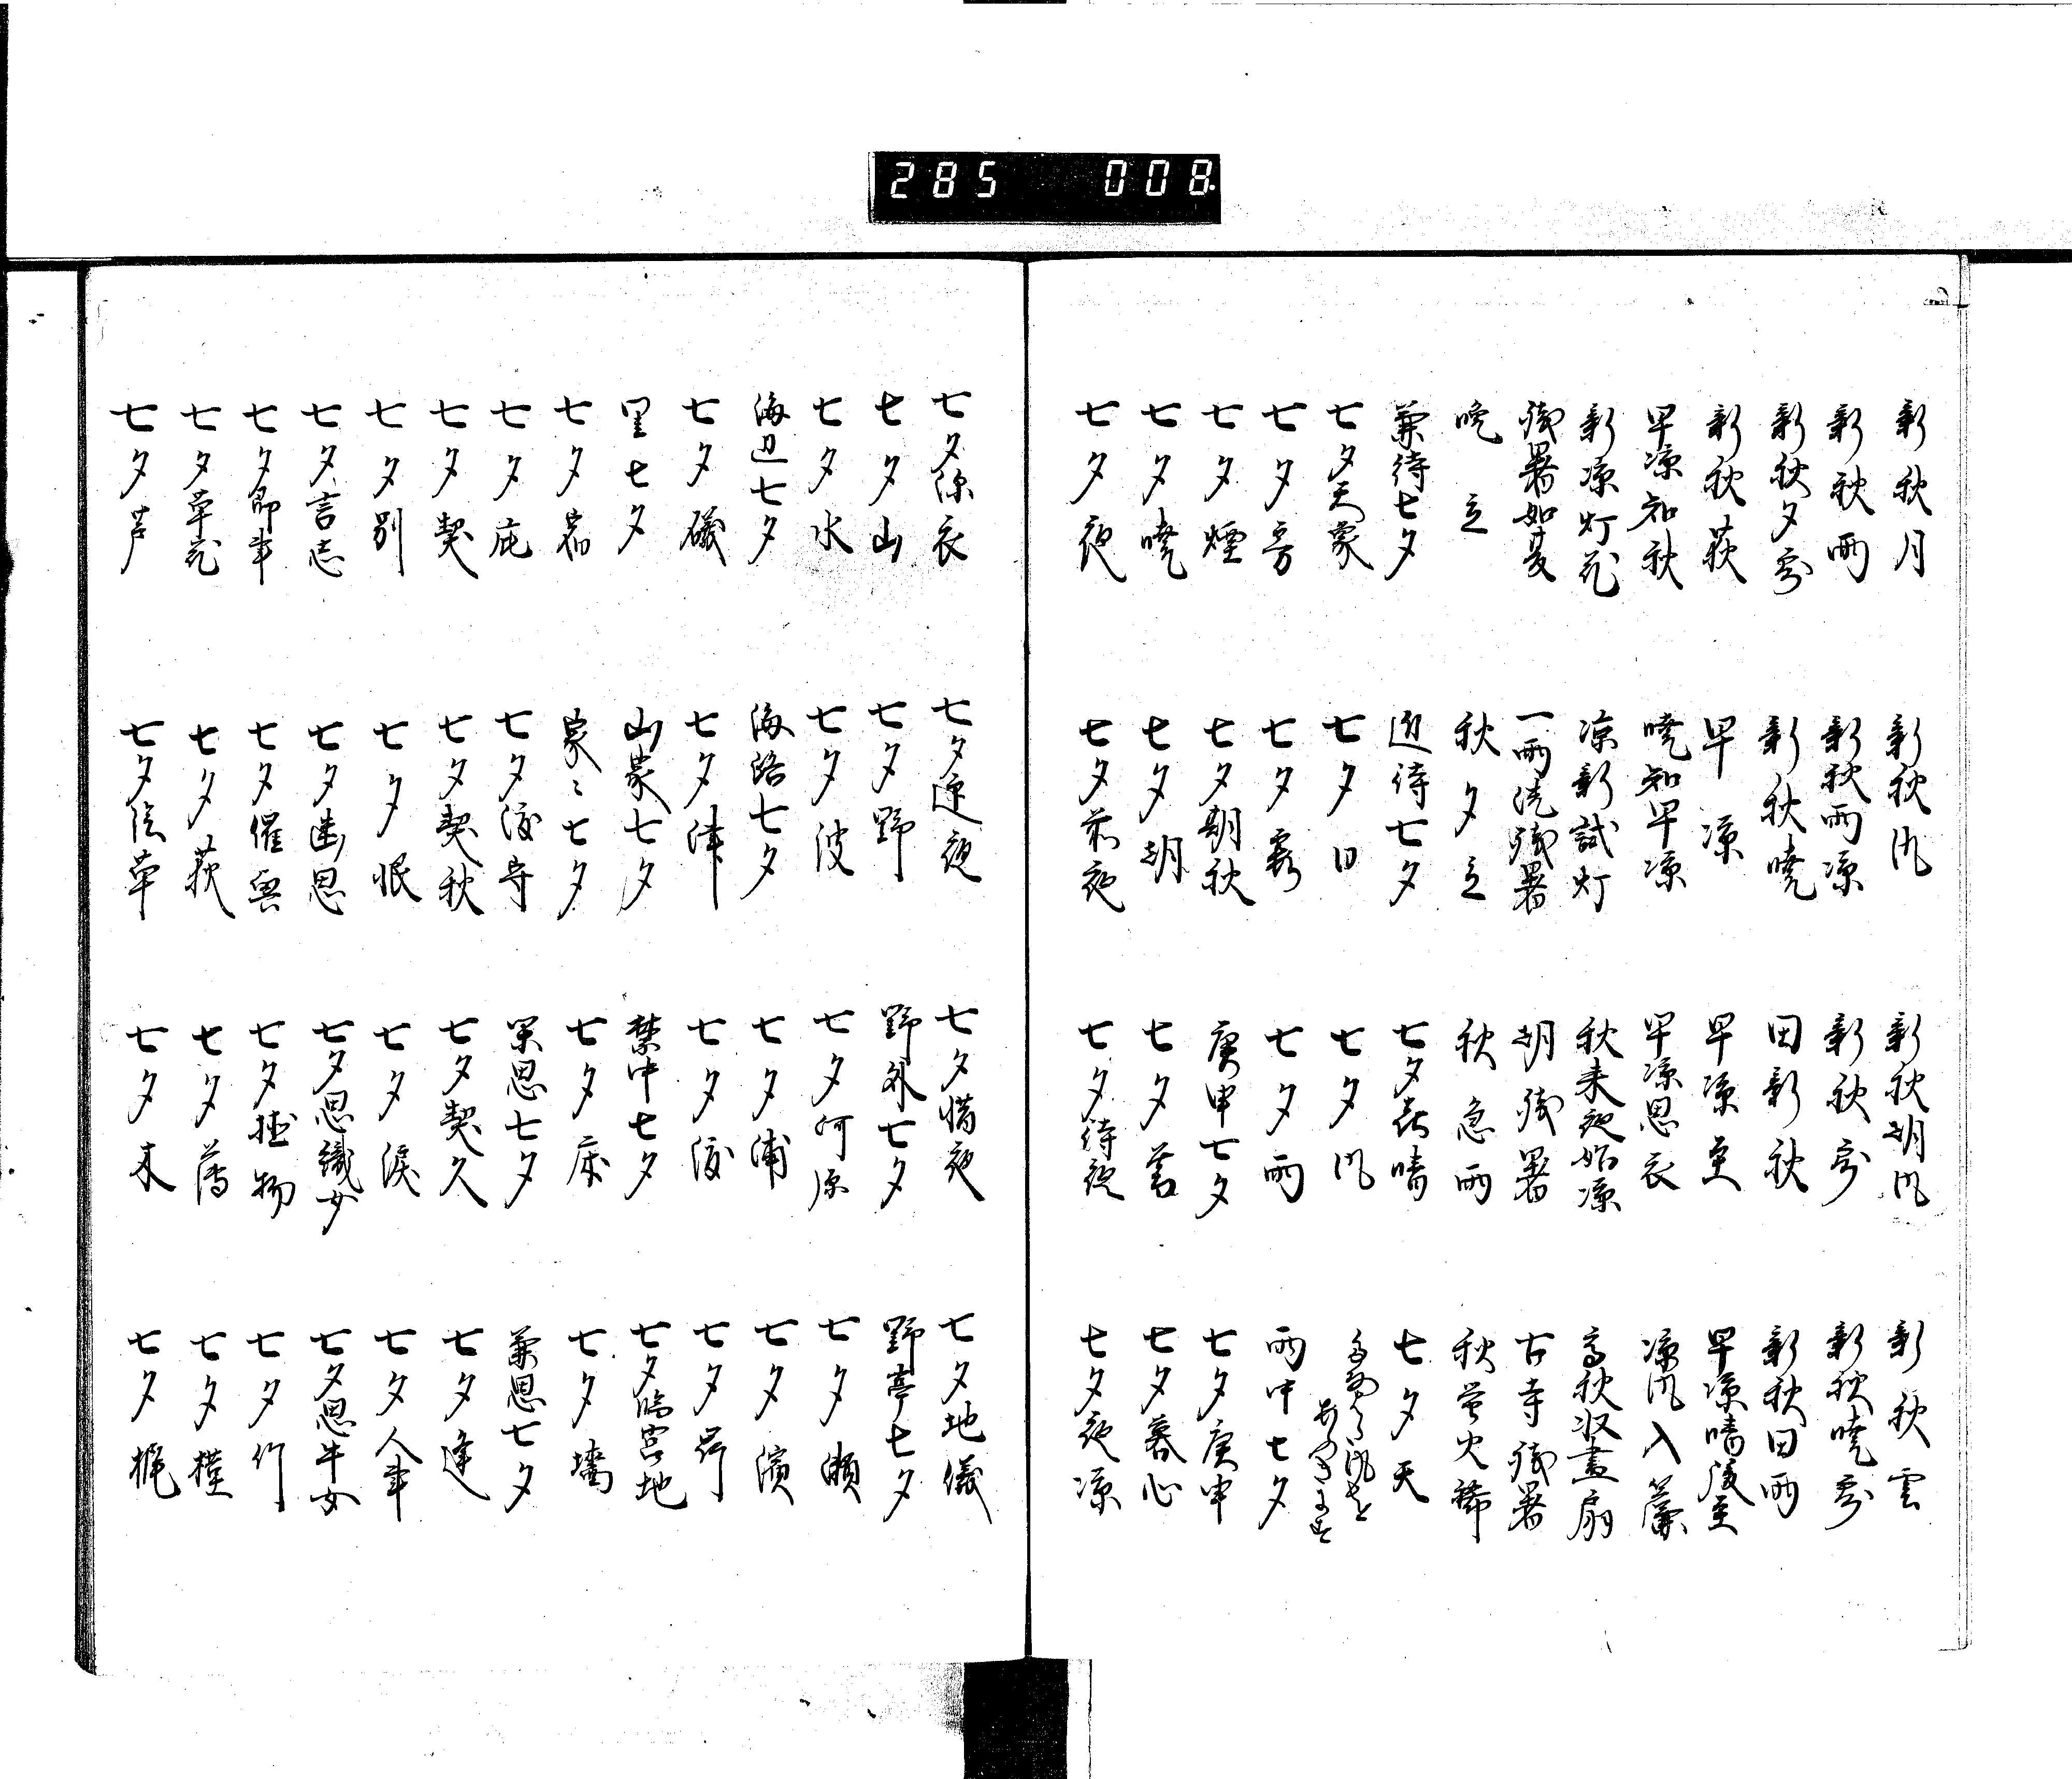 新秋月
新秋風
新秋朝風
新秋雲
新秋雨
新秋雨涼
新秋露
新秋暁露
新秋夕露
新秋暁
田新秋
新秋田雨
新秋荻
早涼
早涼至
早涼晴後至
早涼知秋
暁知早涼
早涼思衣
涼風入簾
新涼灯花
涼新試灯
秋来夜始涼
高秋収畫扇
残暑如夏
一雨洗残暑
朝残暑
古寺残暑
晩立
秋夕立
秋急雨
秋蛍火稀
兼待七夕
近待七夕
七夕喜晴
七夕天
七夕天象
七夕日
七夕風
七夕雲
七夕霧
七夕雨
雨中七夕
七夕煙
七夕期秋
庚申七夕
七夕庚申
七夕暁
七夕朝
七夕暮
七夕暮心
七夕夜
七夕前夜
七夕待夜
七夕夜涼
七夕深衣
七夕逆夜
七夕惜夜
七夕地儀
七夕山
七夕野
野外七夕
野亭七夕
七夕水
七夕波
七夕河原
七夕瀬
海辺七夕
海路七夕
七夕浦
七夕濱
七夕磯
七夕津
七夕渡
七夕岸
里七夕
山家七夕
禁中七夕
七夕臨宮地
七夕宿
家々七夕
七夕床
七夕墻
七夕庭
七夕渡舟
閑思七夕
兼思七夕
七夕契
七夕契秋
七夕契久
七夕逢
七夕別
七夕恨
七夕涙
七夕人事
七夕言志
七夕幽思
七夕思織女
七夕思牛女
七夕即事
七夕催興
七夕植物
七夕竹
七夕草花
七夕荻
七夕薄
七夕槿
七夕芦
七夕陰草
七夕木
七夕梶
285 008